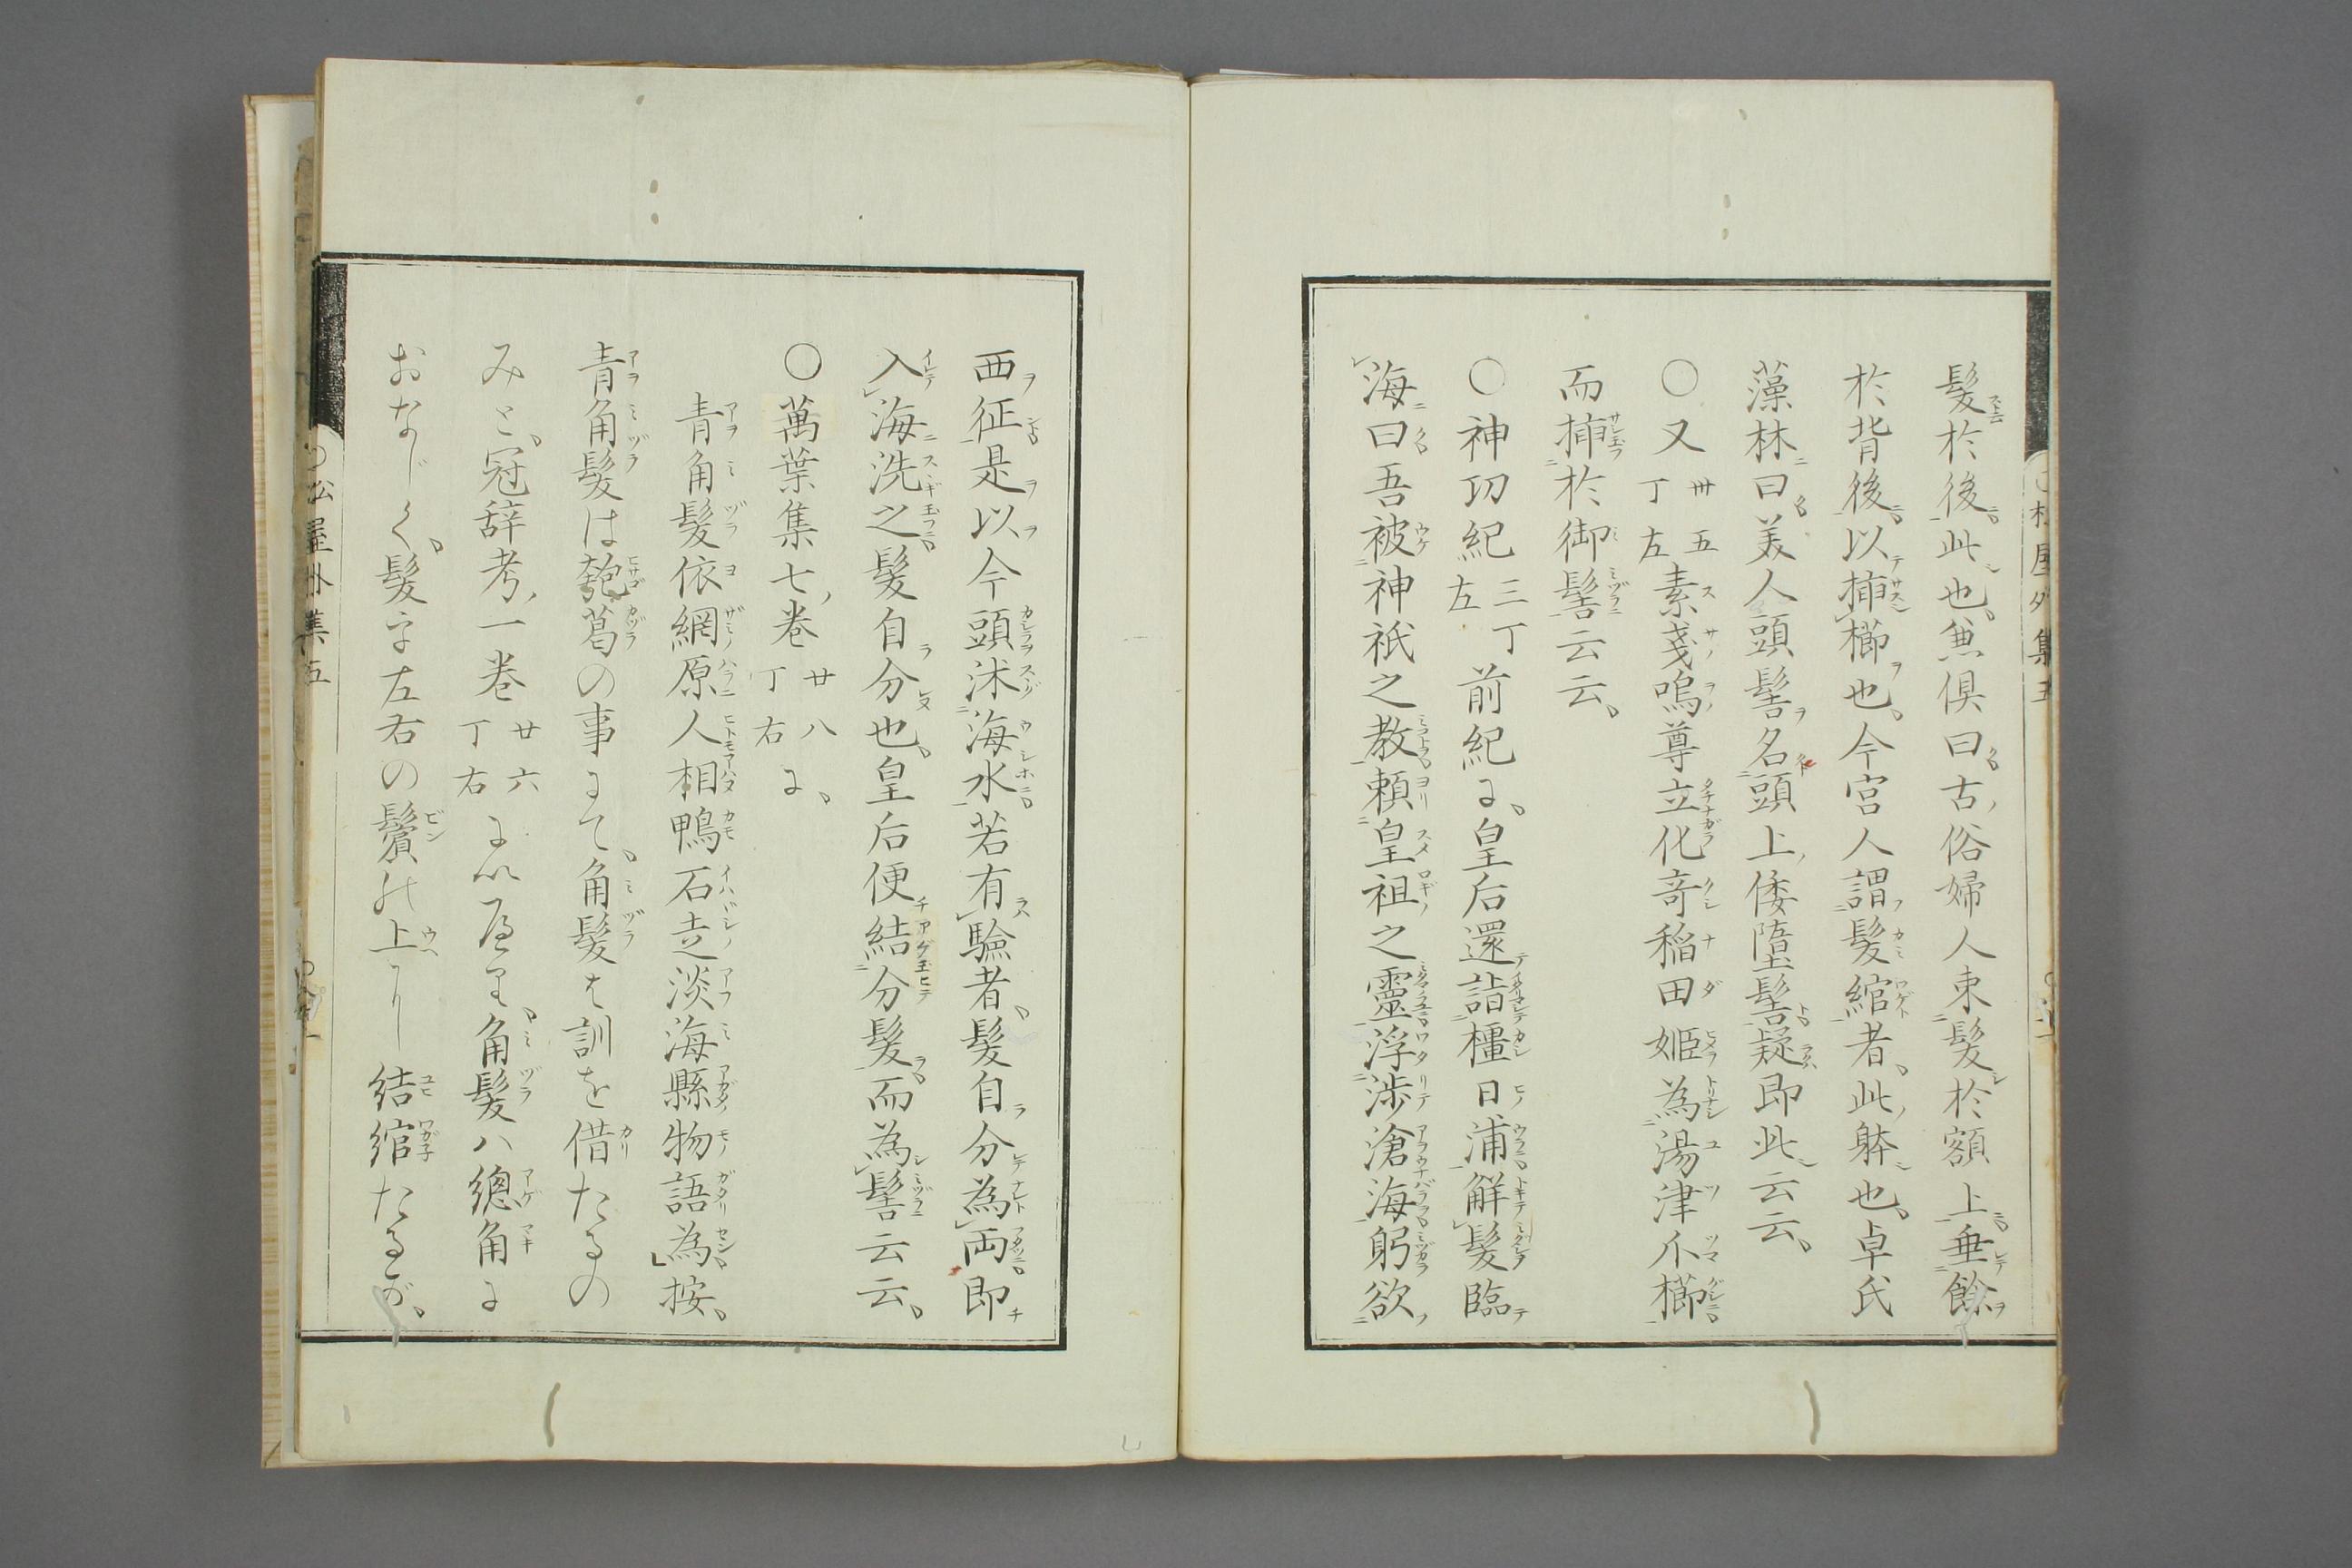 髮於後此也兼倶曰古俗婦人束髮於額上垂餘
於背後以插櫛也今宮人謂髮綰者此躰也卓氏
藻林曰美人頭髻名頭上倭墮髻疑即此云云
〇又卅五丁左素戔嗚尊立化奇稲田姬為湯津爪櫛
而插於御髻云云
〇神功紀三丁左前紀に皇后還詣橿日浦解髮臨
海曰吾被神祇之教頼皇祖之靈浮渉滄海躬欲
西征是以今頭沐海水若有驗者髮自分為両即
入海洗之髮自分也皇后便結分髮而為髻云云
〇萬葉集七卷廿八丁右に
青角髮依網原人相鴨石走淡海縣物語為按
青角髮は匏葛の事にて角髮は訓を借たるの
みと冠辞考一卷廿六丁右にいへり角髮ハ總角に
おなじく髮を左右の鬢の上に結綰たるが
松屋外集五
松屋外集五